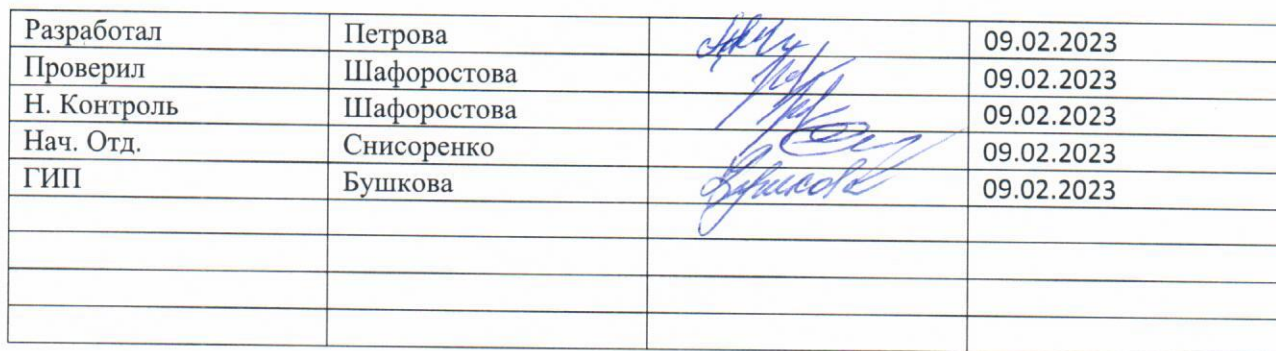 Разработал Петрова 09.02.2023
Проверил Шафоростова 09.02.2023
Н. Контроль Шафоростова 09.02.2023
Нач. Отд. Снисоренко 09.02.2023
ГИП Бушкова 09.02.2023